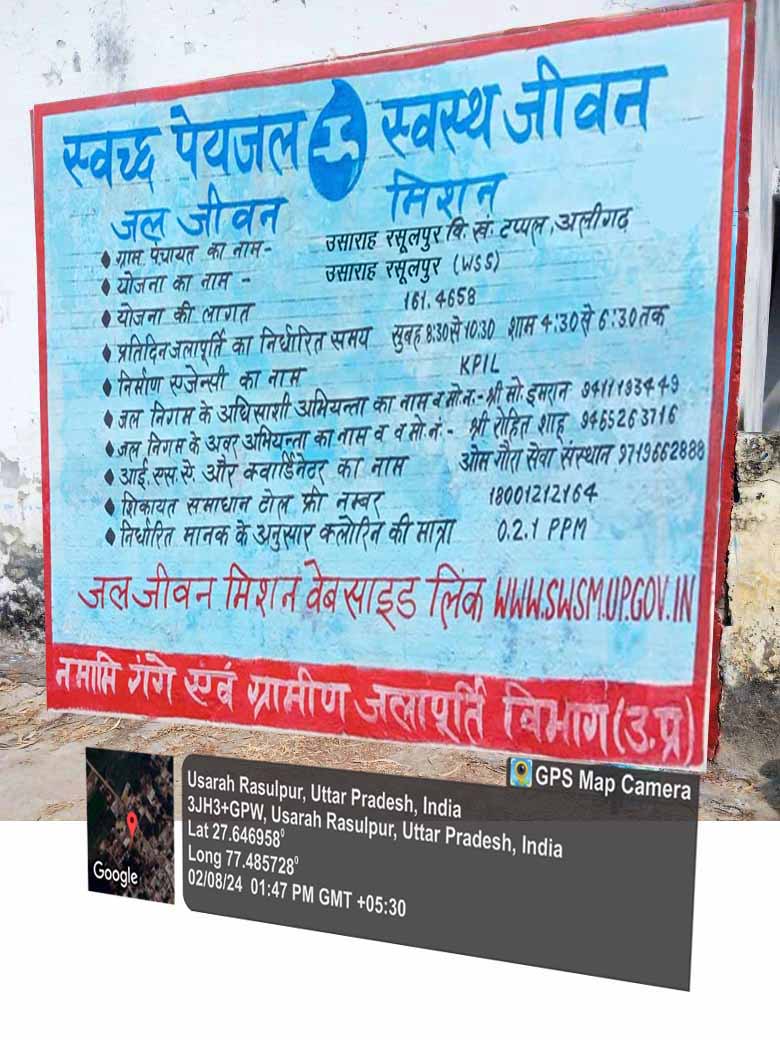 स्वच्छ पेयजल स्वस्थ जीवन
जल जीवन मिशन
ग्राम पंचायत का नाम- उसाराह रसूलपुर वि. खं. टप्पल, अलीगढ़
योजना का नाम - उसाराह रसूलपुर (WSS)
योजना की लागत 161.4658
प्रतिदिन जलापूर्ति का निर्धारित समय सुबह 8:30 से 10:30 शाम 4:30 से 6:30 तक
निर्माण एजेन्सी का नाम KPIL
जल निगम के अधिसाशी अभियन्ता का नाम व मो.न.- श्री मो. इमरान 9411193449
जल निगम के अवर अभियन्ता का नाम व व मो.नं- श्री रोहित शाहू 9465263716
आई. एस. ए. और क्वार्डिनेटर का नाम ओम गौरा सेवा संस्थान 9719662888
शिकायत समाधान टोल फ्री नम्बर 18001212164
निर्धारित मानक के अनुसार क्लोरिन की मात्रा 0.2.1 PPM
जल जीवन मिशन वेबसाइड लिंक WWW.SWSM.UP.GOV.IN
नमामि गंगे एवं ग्रामीण जलापूर्ति विभाग (उ.प्र)
GPS Map Camera
Usarah Rasulpur, Uttar Pradesh, India
3JH3+GPW, Usarah Rasulpur, Uttar Pradesh, India
Lat 27.646958°
Long 77.485728°
02/08/24 01:47 PM GMT +05:30
Google